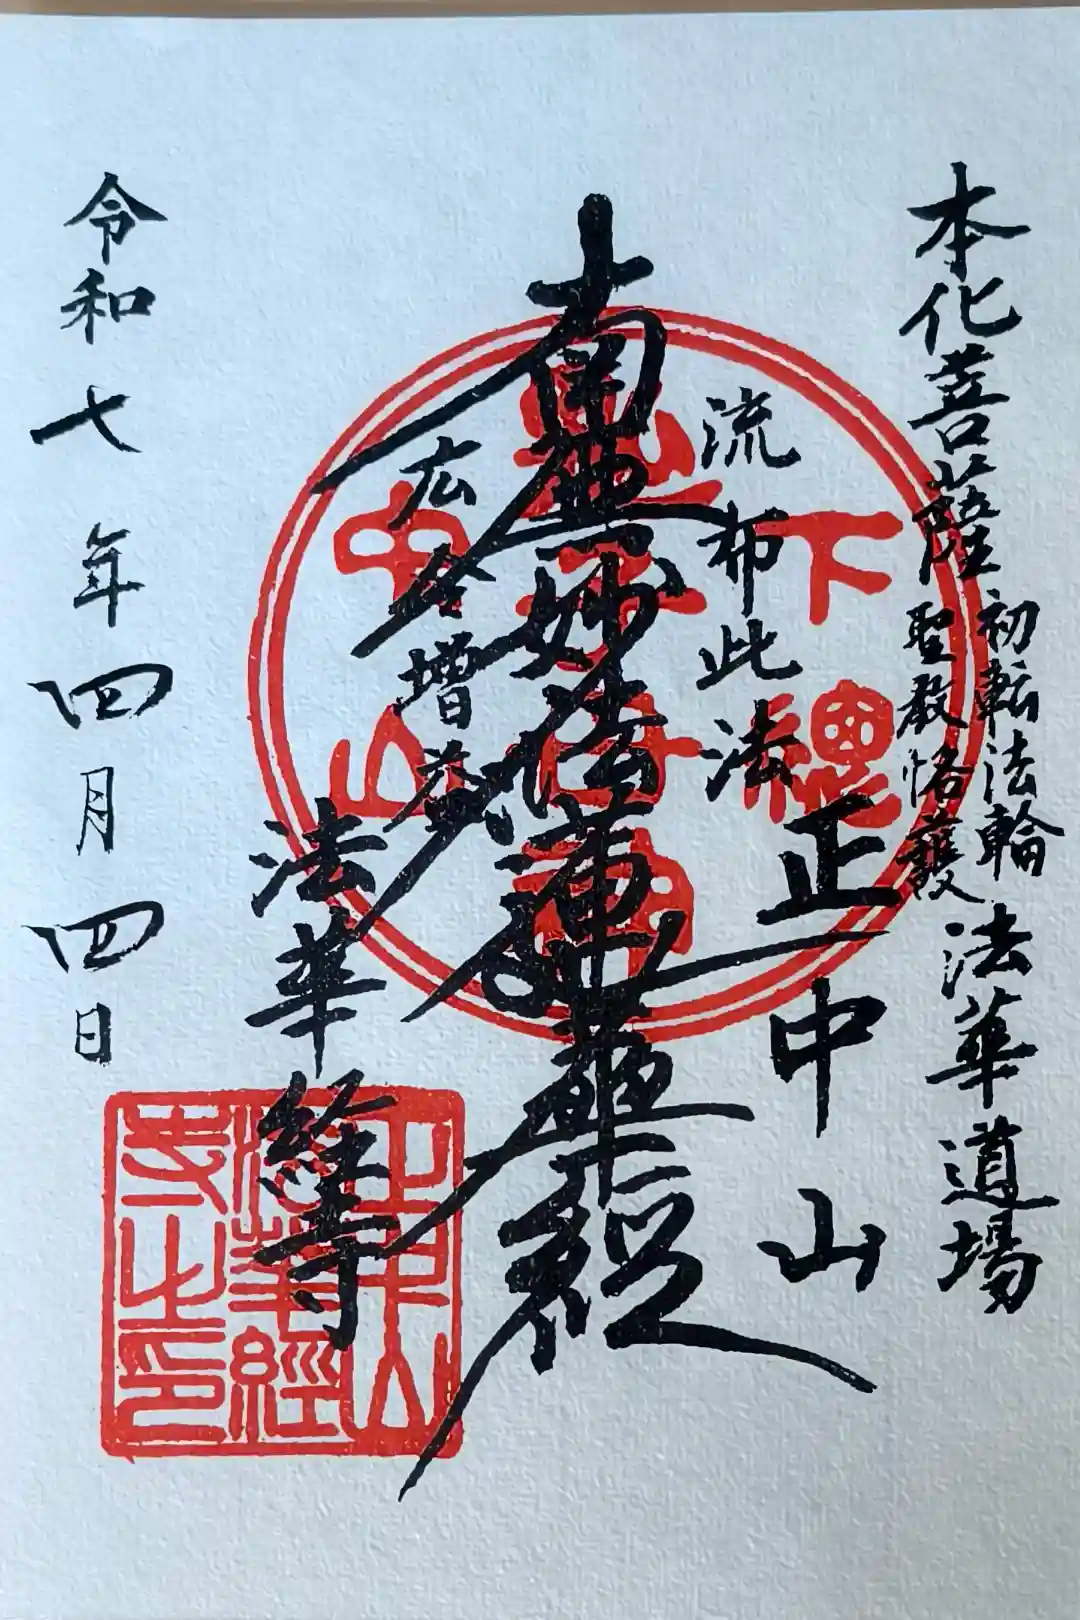 本化菩薩
初転法輪
聖教格護
法華道場
正中山
流布此法
南無妙法蓮華経
広令増益
法華経寺
令和七年四月四日
下總
中山
正中山
法華經
寺之印